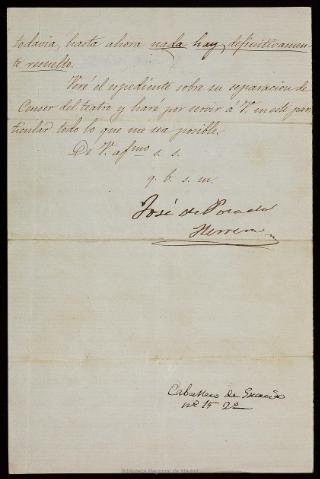 todavia, hasta ahora nada hay, definitivamen
te resuelto.
Veré el espediente sobre su separacion de
Censor del teatro y haré por servir á V. en este par
ticular todo lo que me sea posible.
De V. afmo s. s.
q. b. s. m.
José de Posada
Herrera
Caballero de Gracia
nº 15 2º
Biblioteca Nacional de España